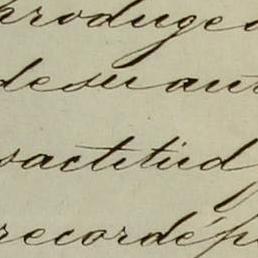 produge
de su au
sactitud
recordé p